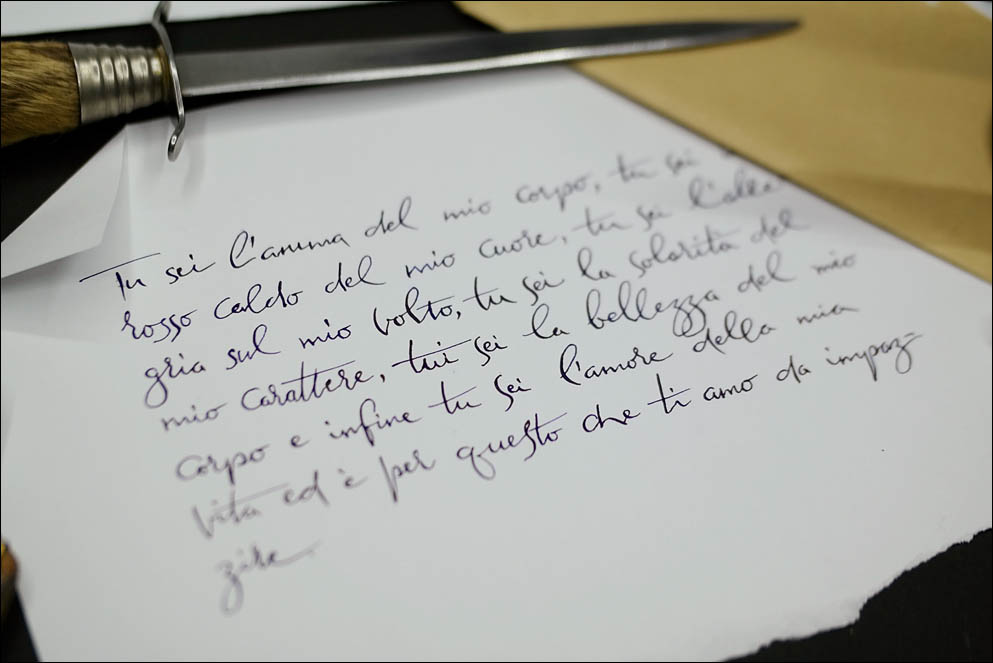 Tu sei l'anima del mio corpo, tu sei
rosso caldo del mio cuore, tu sei l'alle
gria sul mio volto, tu sei la solarità del
mio carattere, tui sei la bellezza del mio
corpo e infine tu sei l'amore della mia
vita ed è per questo che ti amo da impaz-
zire